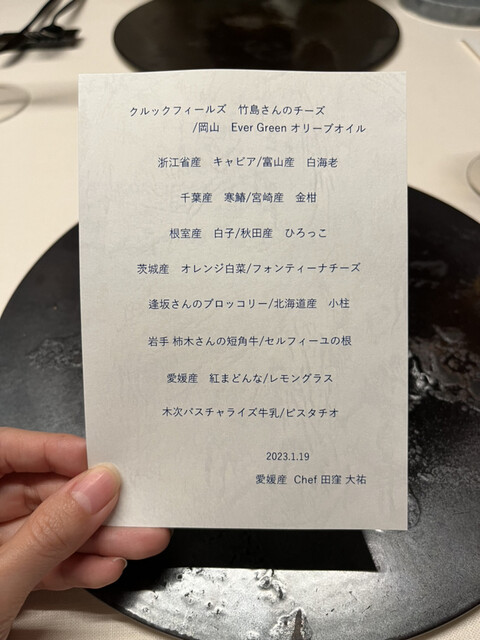 クルックフィールズ　竹島さんのチーズ
/岡山　Ever Green オリーブオイル
浙江省産　キャビア/富山産　白海老
千葉産　寒鰆/宮崎産　金柑
根室産　白子/秋田産　ひろっこ
茨城産　オレンジ白菜/フォンティーナチーズ
逢坂さんのブロッコリー/北海道産　小柱
岩手 柿木さんの短角牛/セルフィーユの根
愛媛産　紅まどんな/レモングラス
木次パスチャライズ牛乳/ピスタチオ
2023.1.19
愛媛産　Chef 田窪 大祐